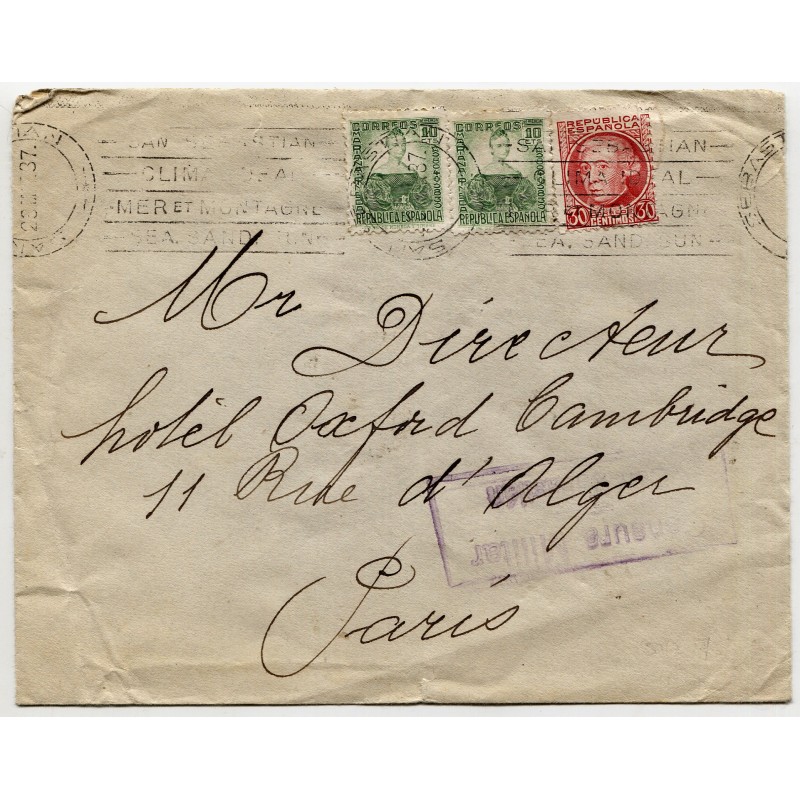 SAN SEBASTIAN
CLIMA IDEAL
MER ET MONTAGNE
SEA, SAND, SUN
37
CORREOS 10
REPÚBLICA ESPAÑOLA
CORREOS 10
REPÚBLICA ESPAÑOLA
REPUBLICA
ESPAÑOLA
30 CENTIMOS 30
SAN SEBASTIAN
CLIMA IDEAL
MER ET MONTAGNE
SEA, SAND, SUN
Mr Directeur
hotêl Oxford Cambridge
11 Rue d'Alger
Paris
Censura Militar